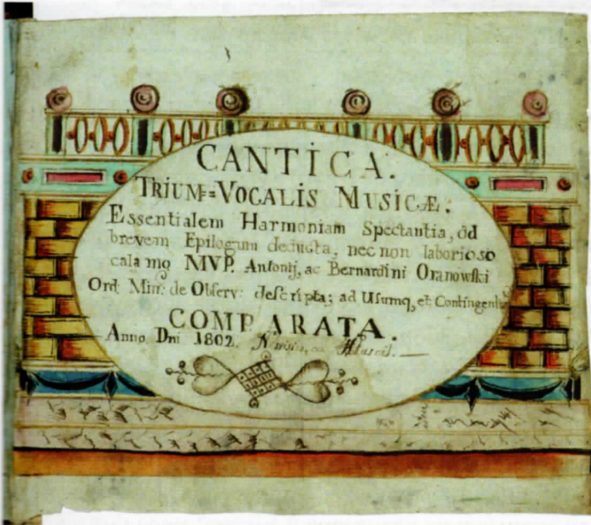 CANTICA.
TRIUM=VOCALIS MUSICÆ:
Essentialem Harmoniam Spectantia, ad
brevem Epilogum deducta, nec non laborioso
calamo MVP. Antonij, ac Bernardini Oranowski
Ord: Min: de Observ: descripta; ad Usumq, et
COMPARATA.
Anno Dni 1802.